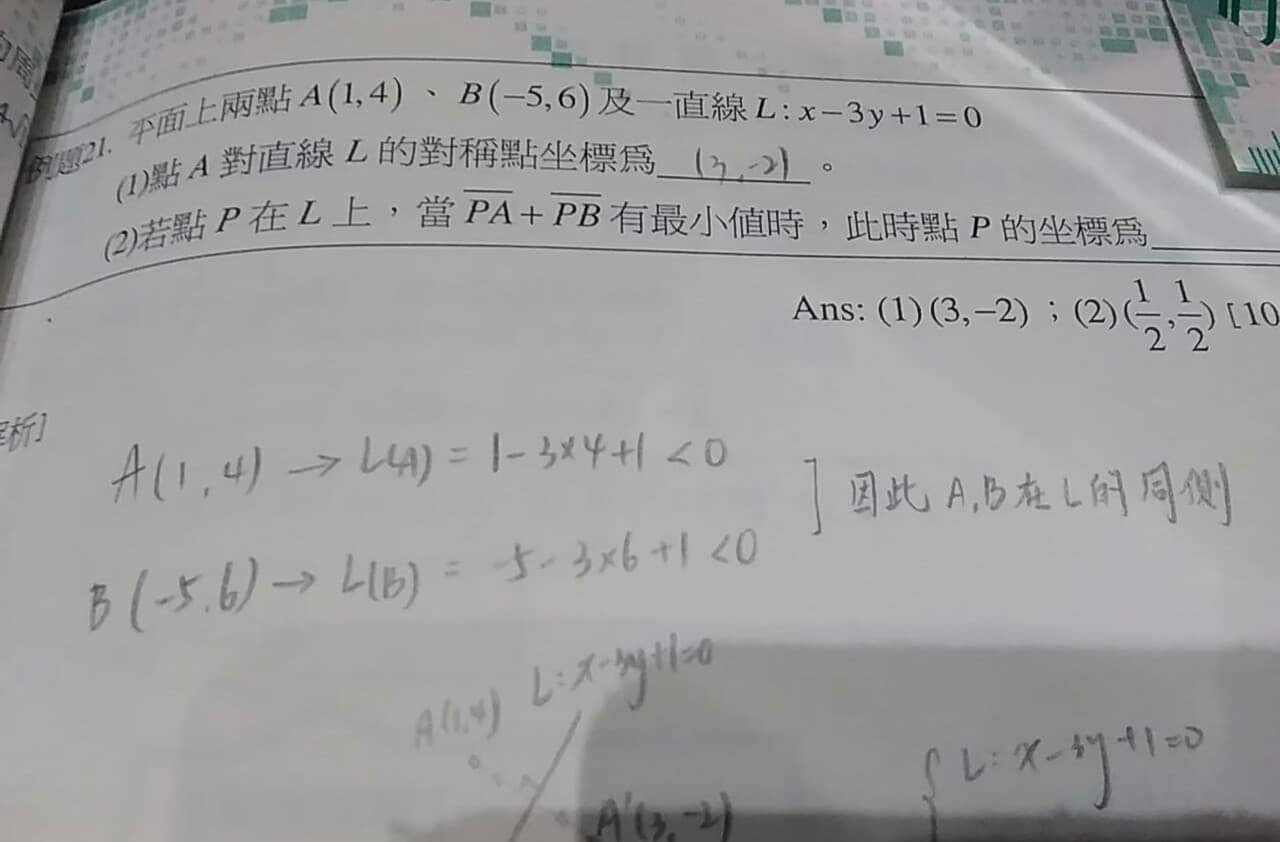 例題21. 平面上兩點 A(1,4) 、 B(−5,6) 及一直線 L : x−3y+1=0
(1)點 A 對直線 L 的對稱點坐標為 (3,-2) 。
(2)若點 P 在 L 上，當 \overline{PA}+\overline{PB} 有最小值時，此時點 P 的坐標為
Ans: (1)(3,−2) ；(2)(1/2,1/2) [10
解析]
A(1,4) → L(A) = 1-3×4+1 <0
] 因此 A,B在L的同側
B(-5,6) → L(B) = -5-3×6+1 <0
L:x-3y+1=0
A(1,4)
A'(3,-2)
{ L: x-3y+1=0